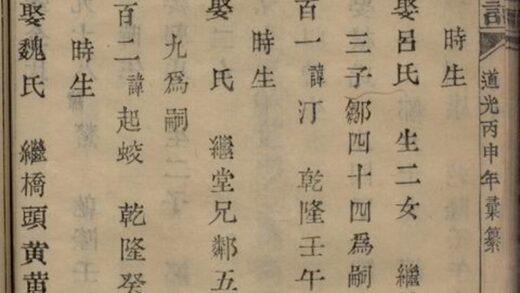 道光丙申年彙纂
時生
娶呂氏 生二女 繼
三子鄒四十四為嗣
百一諱汀 乾隆壬午
時生
娶 氏 繼堂兄鄰五
九為嗣
百二諱起蛟 乾隆癸
時生
娶魏氏 繼橋頭黃